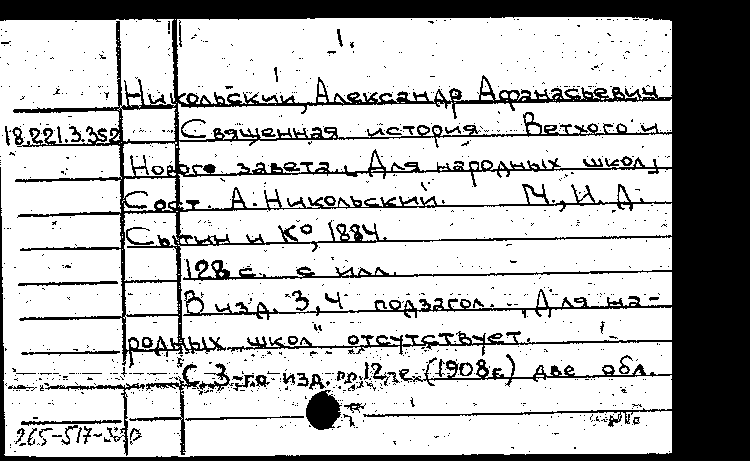 1.
Никольский, Александр Афанасьевич
18.221.3.352 Священная история Ветхого и
Нового завета. Для народных школ.
Сост. А. Никольский. М., И. Д.
Сытин и К⁰, 1884.
128 с. с илл.
В изд. 3, 4 подзагол. „Для на-
родных школ" отсутствует.
С 3-го изд. по 12-ое (1908г.) две обл.
265-517-